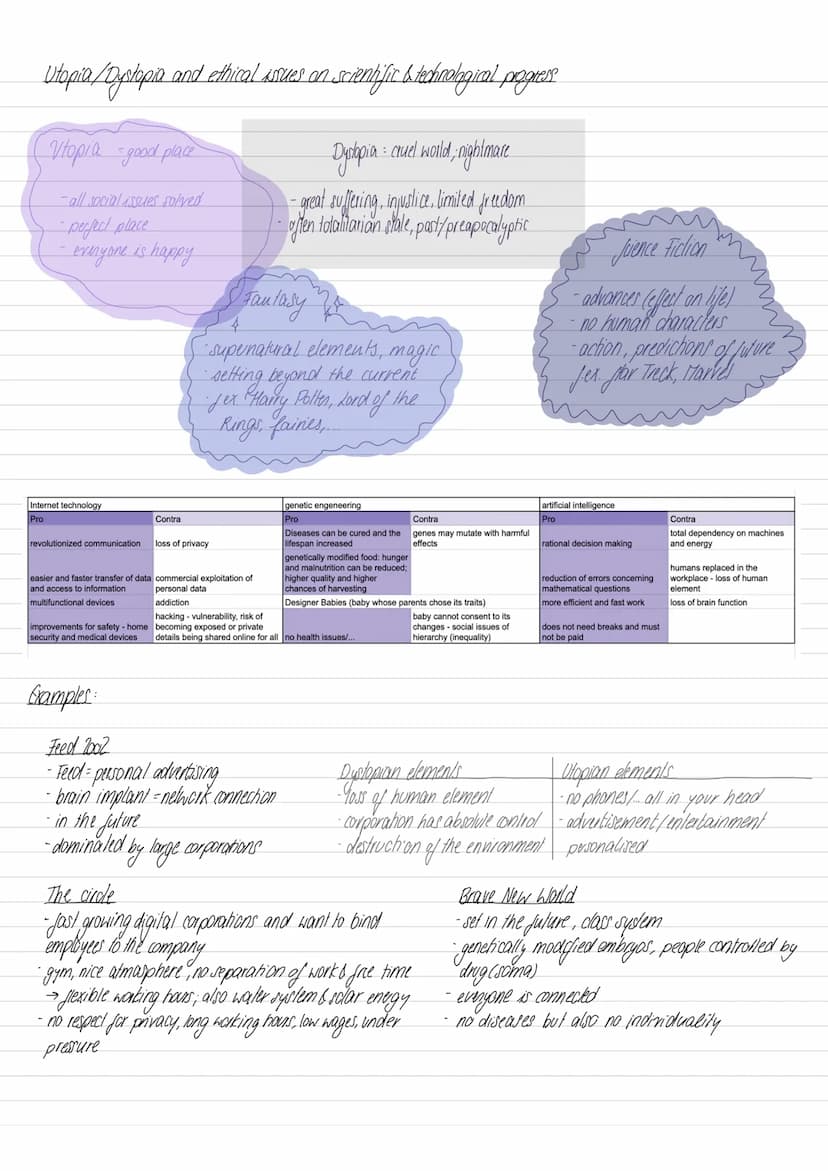 Utopia/Dystopia and ethical issues on scientific & technological progress
Utopia = good place
- all social issues solved
- perfect place
- everyone is happy
Dystopia: cruel world, nightmare
- great suffering, injustice, limited freedom
- often totalitarian state, post/preapocalyptic
Fantasy
· supernatural elements, magic
· setting beyond the current
· f.ex. Harry Potter, Lord of the
Rings, fairies,...
Science Fiction
- advances (effect on life)
- no human characters
- action, predictions of future
f.ex. Star Treck, Marvel
Internet technology
Pro
Contra
revolutionized communication
loss of privacy
easier and faster transfer of data
and access to information
commercial exploitation of
personal data
multifunctional devices
addiction
improvements for safety - home
security and medical devices
hacking - vulnerability, risk of
becoming exposed or private
details being shared online for all
genetic engeneering
Pro
Contra
Diseases can be cured and the
lifespan increased
genes may mutate with harmful
effects
genetically modified food: hunger
and malnutrition can be reduced;
higher quality and higher
chances of harvesting
Designer Babies (baby whose parents chose its traits)
no health issues/...
baby cannot consent to its
changes - social issues of
hierarchy (inequality)
artificial intelligence
Pro
Contra
rational decision making
total dependency on machines
and energy
reduction of errors concerning
mathematical questions
humans replaced in the
workplace - loss of human
element
more efficient and fast work
loss of brain function
does not need breaks and must
not be paid
Examples:
Feed 2002
- Feed = personal advertising
- brain implant = network connection
- in the future
- dominated by large corporations
Dystopian elements
- loss of human element
· corporation has absolute control
· destruction of the environment
Utopian elements
· no phones/... all in your head
- advertisement/entertainment
personalised
The circle
- fast growing digital corporations and want to bind
employees to the company
· gym, nice atmosphere, no separation of work & free time
→ flexible working hours; also water system & solar energy
- no respect for privacy, long working hours, low wages, under
pressure
Brave New World
- set in the future, class system
· genetically modified embryos, people controlled by
drug (soma)
- everyone is connected
- no diseases but also no individuality